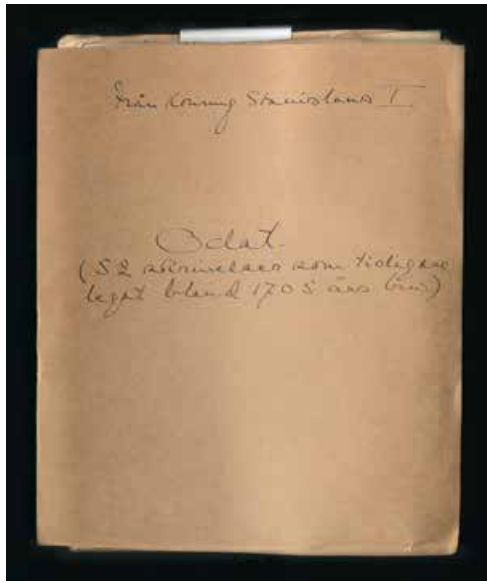 Från Konung Stanislaus I
Odat.
(52 skrivelser som tidigare
legat bland 1705 års brev)